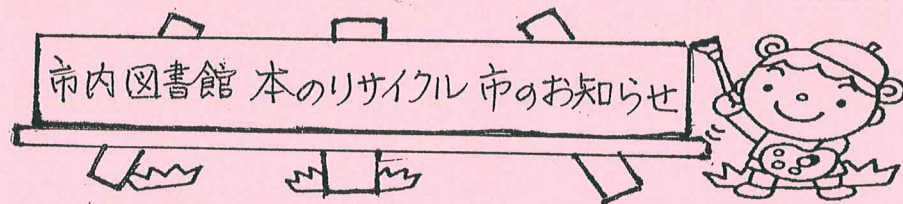 市内図書館 本のリサイクル市のお知らせ